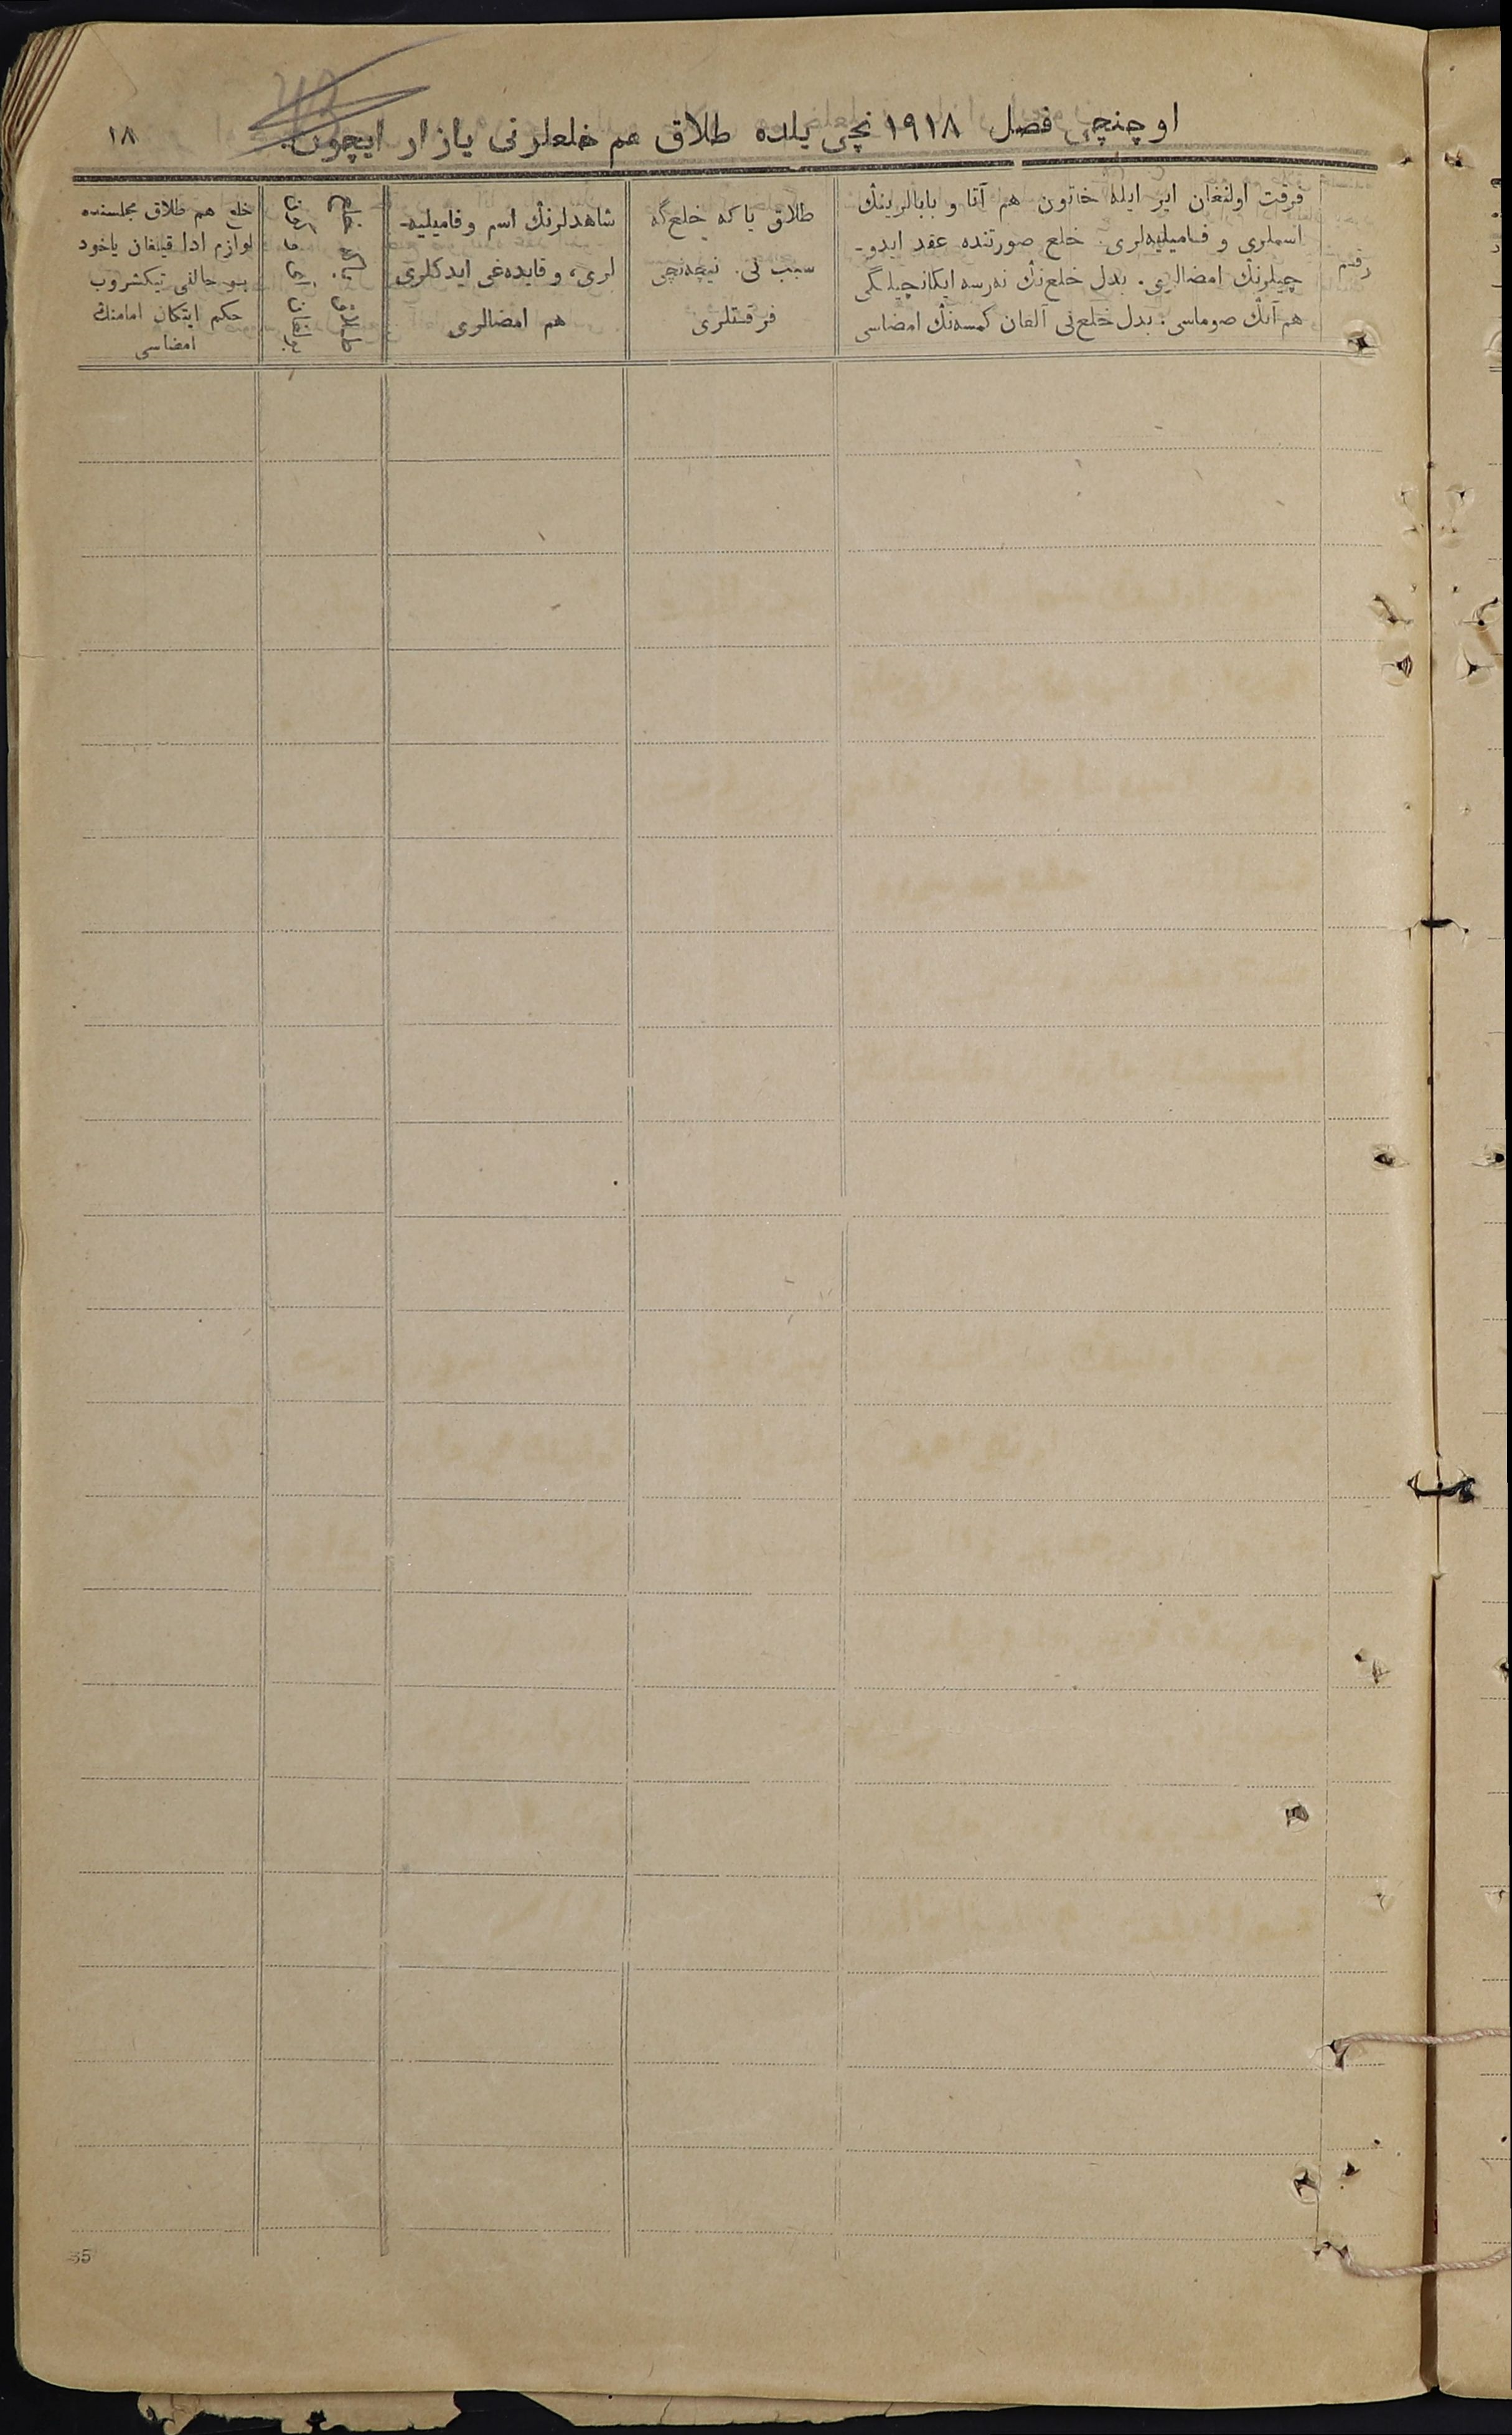 اوچنچی فصل ۱۹۱۸ نچی یلده طلاق هم خلعلرنی یازار ایچون.
۱۸
رقم
فرقت اولنغان ایر ایله خاتون هم آتا و بابالرینڭ
اسملری و فامیلیه‌لری. خلع صورتنده عقد ایدو-
چیلرنڭ امضالری. بدل خلع‌نڭ نه‌رسه ایکانچیلگی
هم آنڭ صوماسی. بدل خلع‌نی آلغان کمسه‌نڭ امضاسی
طلاق یا که خلع‌گه
سبب نی. نیچه‌نچی
فرقتلری
شاهدلرنڭ اسم و فامیلیه-
لری، و قایده‌غی ایدکلری
هم امضالری
طلاق یا که خلع
بولغان آی و کون
خلع هم طلاق مجلسنده
لوازم ادا قیلغان یاخود
بو حالنی تیکشروب
حکم ایتکان امامنڭ
امضاسی
35